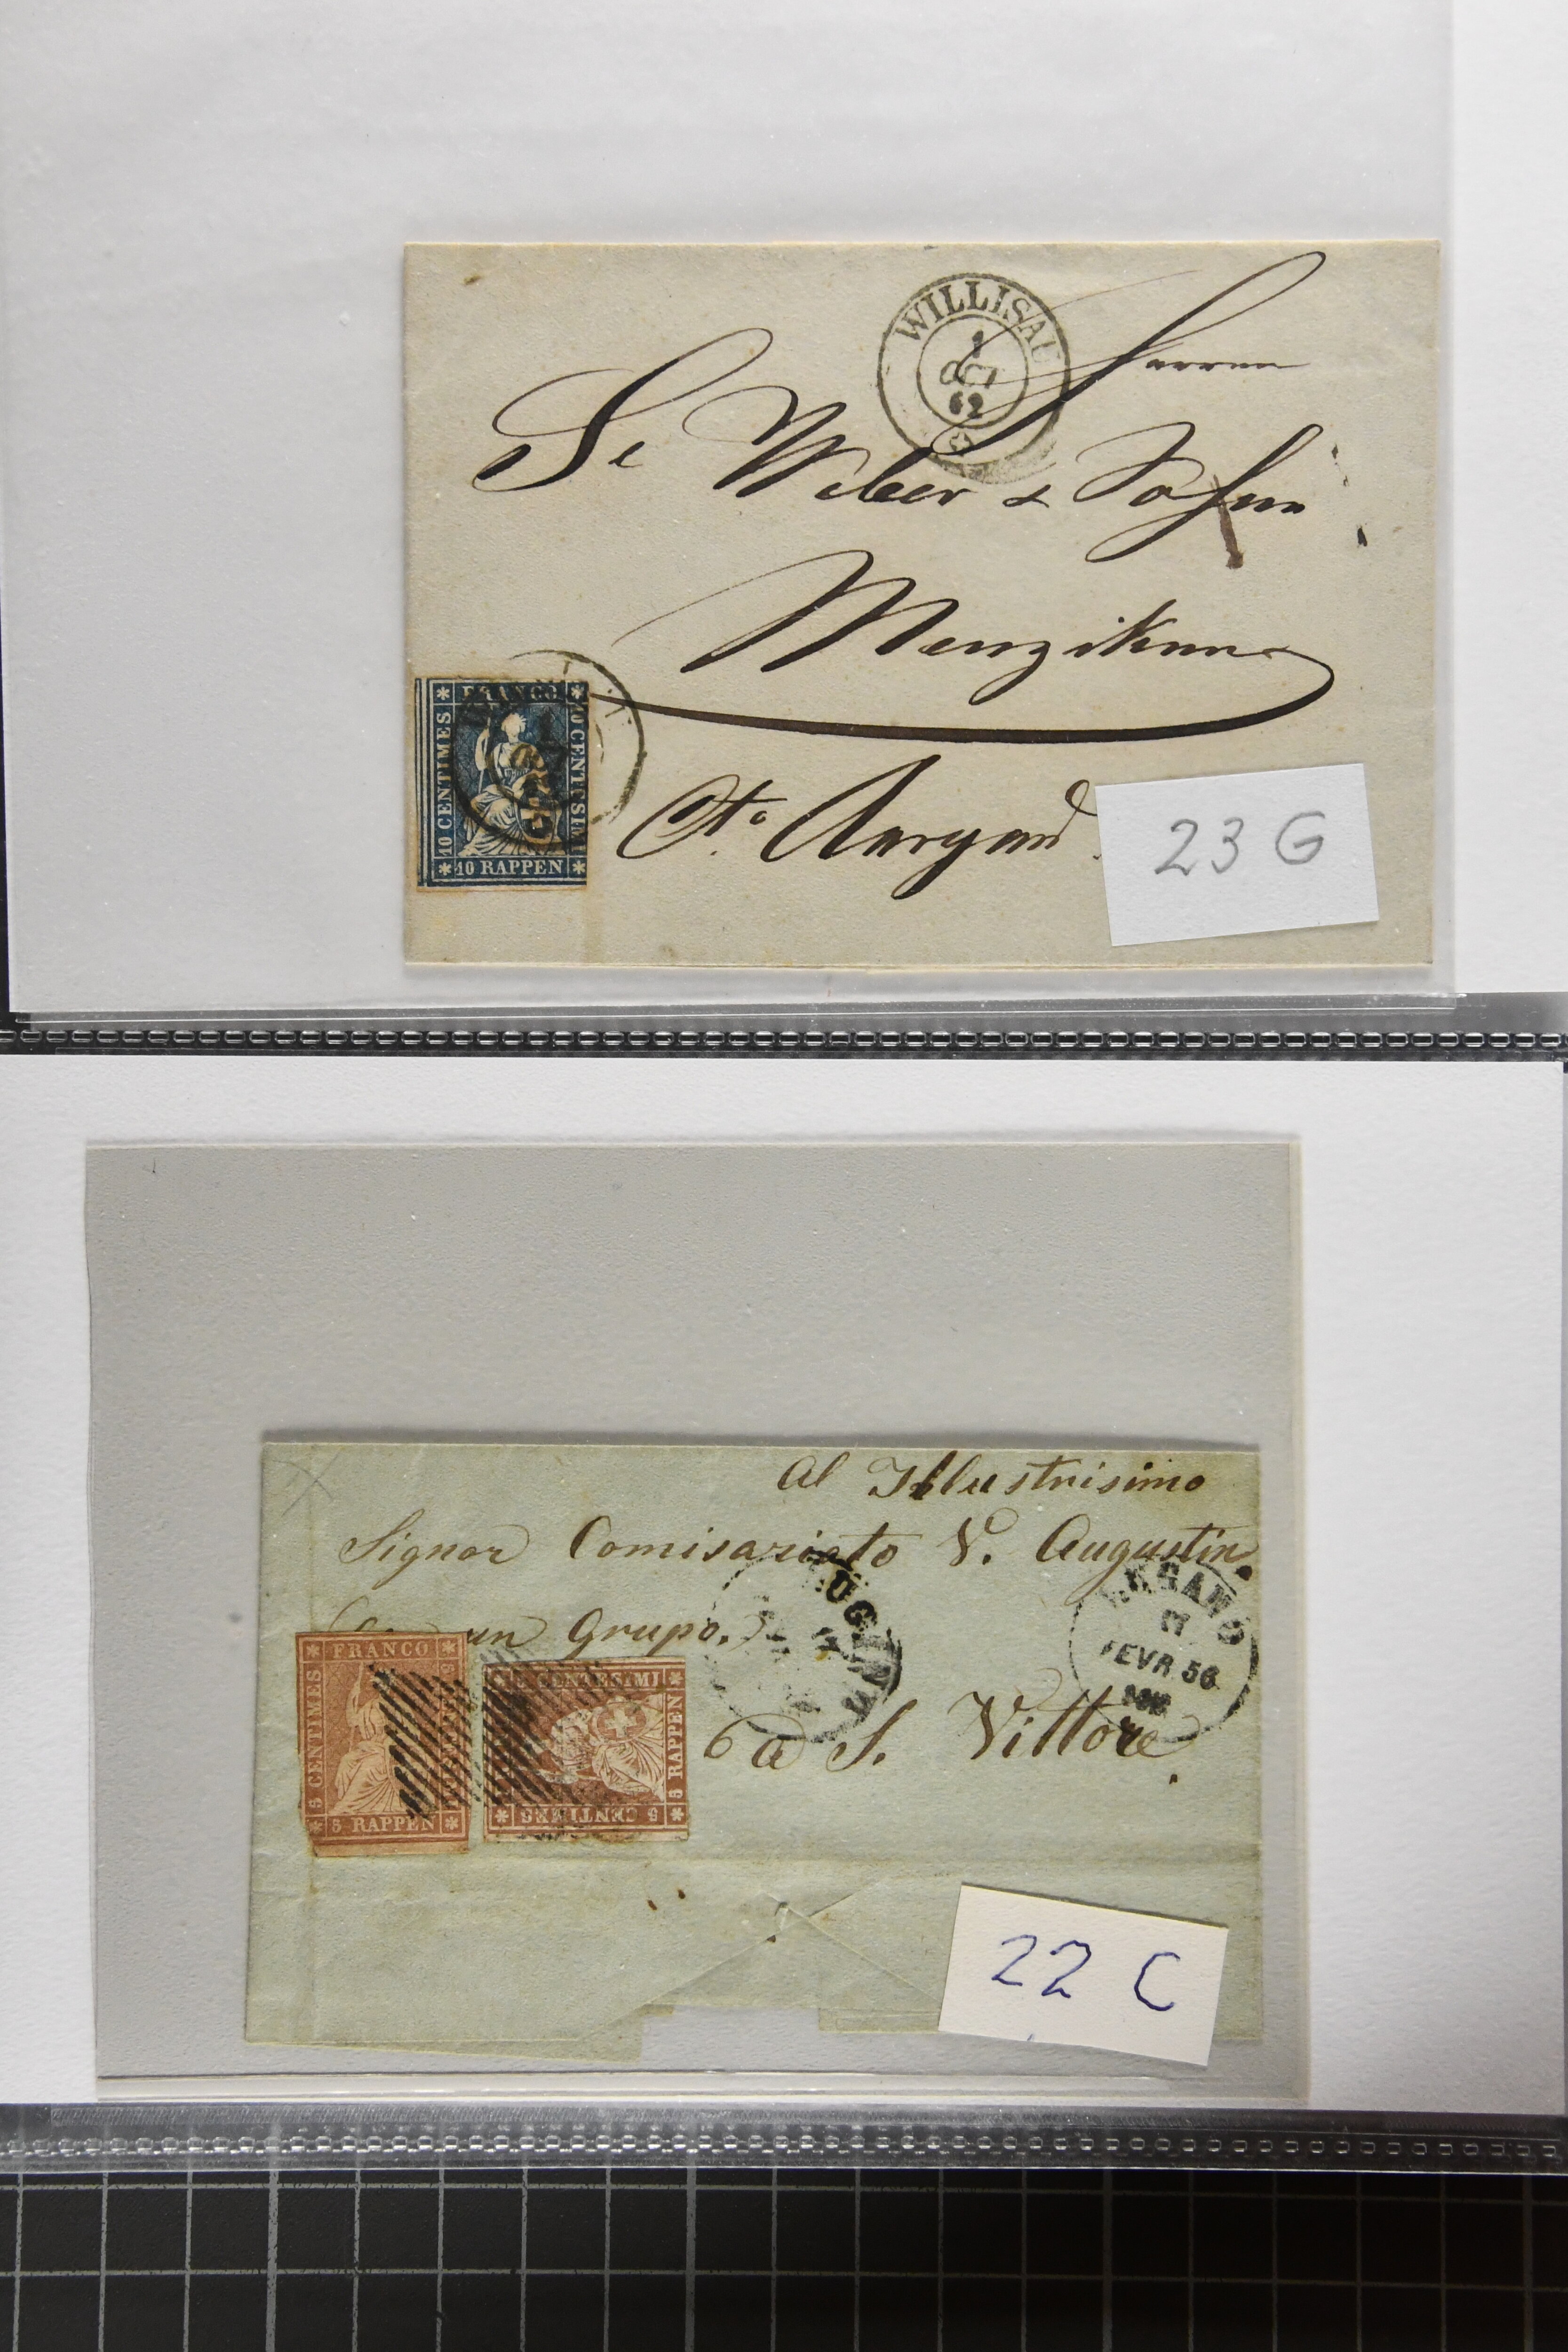 WILLISAU
1
OCT
62
Herren
Se Weber & Söhne
Menziken
Ct. Aargau
FRANCO
10 CENTIMES
10 CENTESIMI
10 RAPPEN
23 G
Al Illustrisimo
Signor Comisariato V. Augustin
un Grupo.
a S. Vittore
17
FEVR 56
FRANCO
5 CENTIMES
5 RAPPEN
5 CENTESIMI
5 RAPPEN
5 CENTIMES
22 C